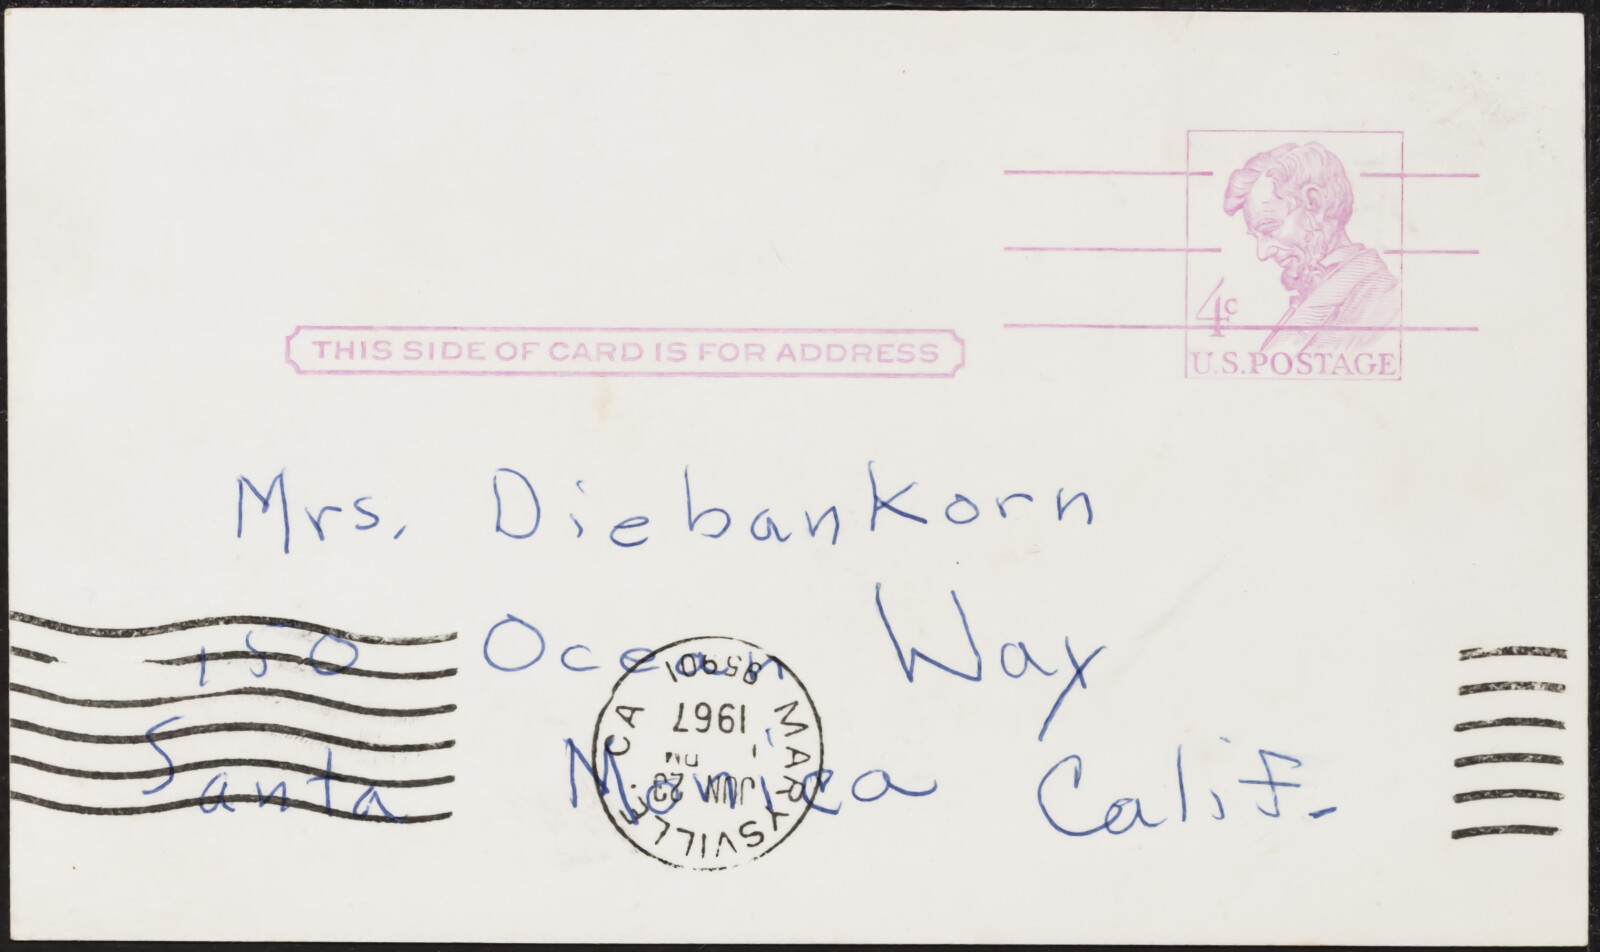 4c
U.S. POSTAGE
THIS SIDE OF CARD IS FOR ADDRESS
Mrs. Diebankorn
150 Ocean Way
Santa Monica Calif.
MARYSVILLE, CA
JUN 22
PM
1967
95901